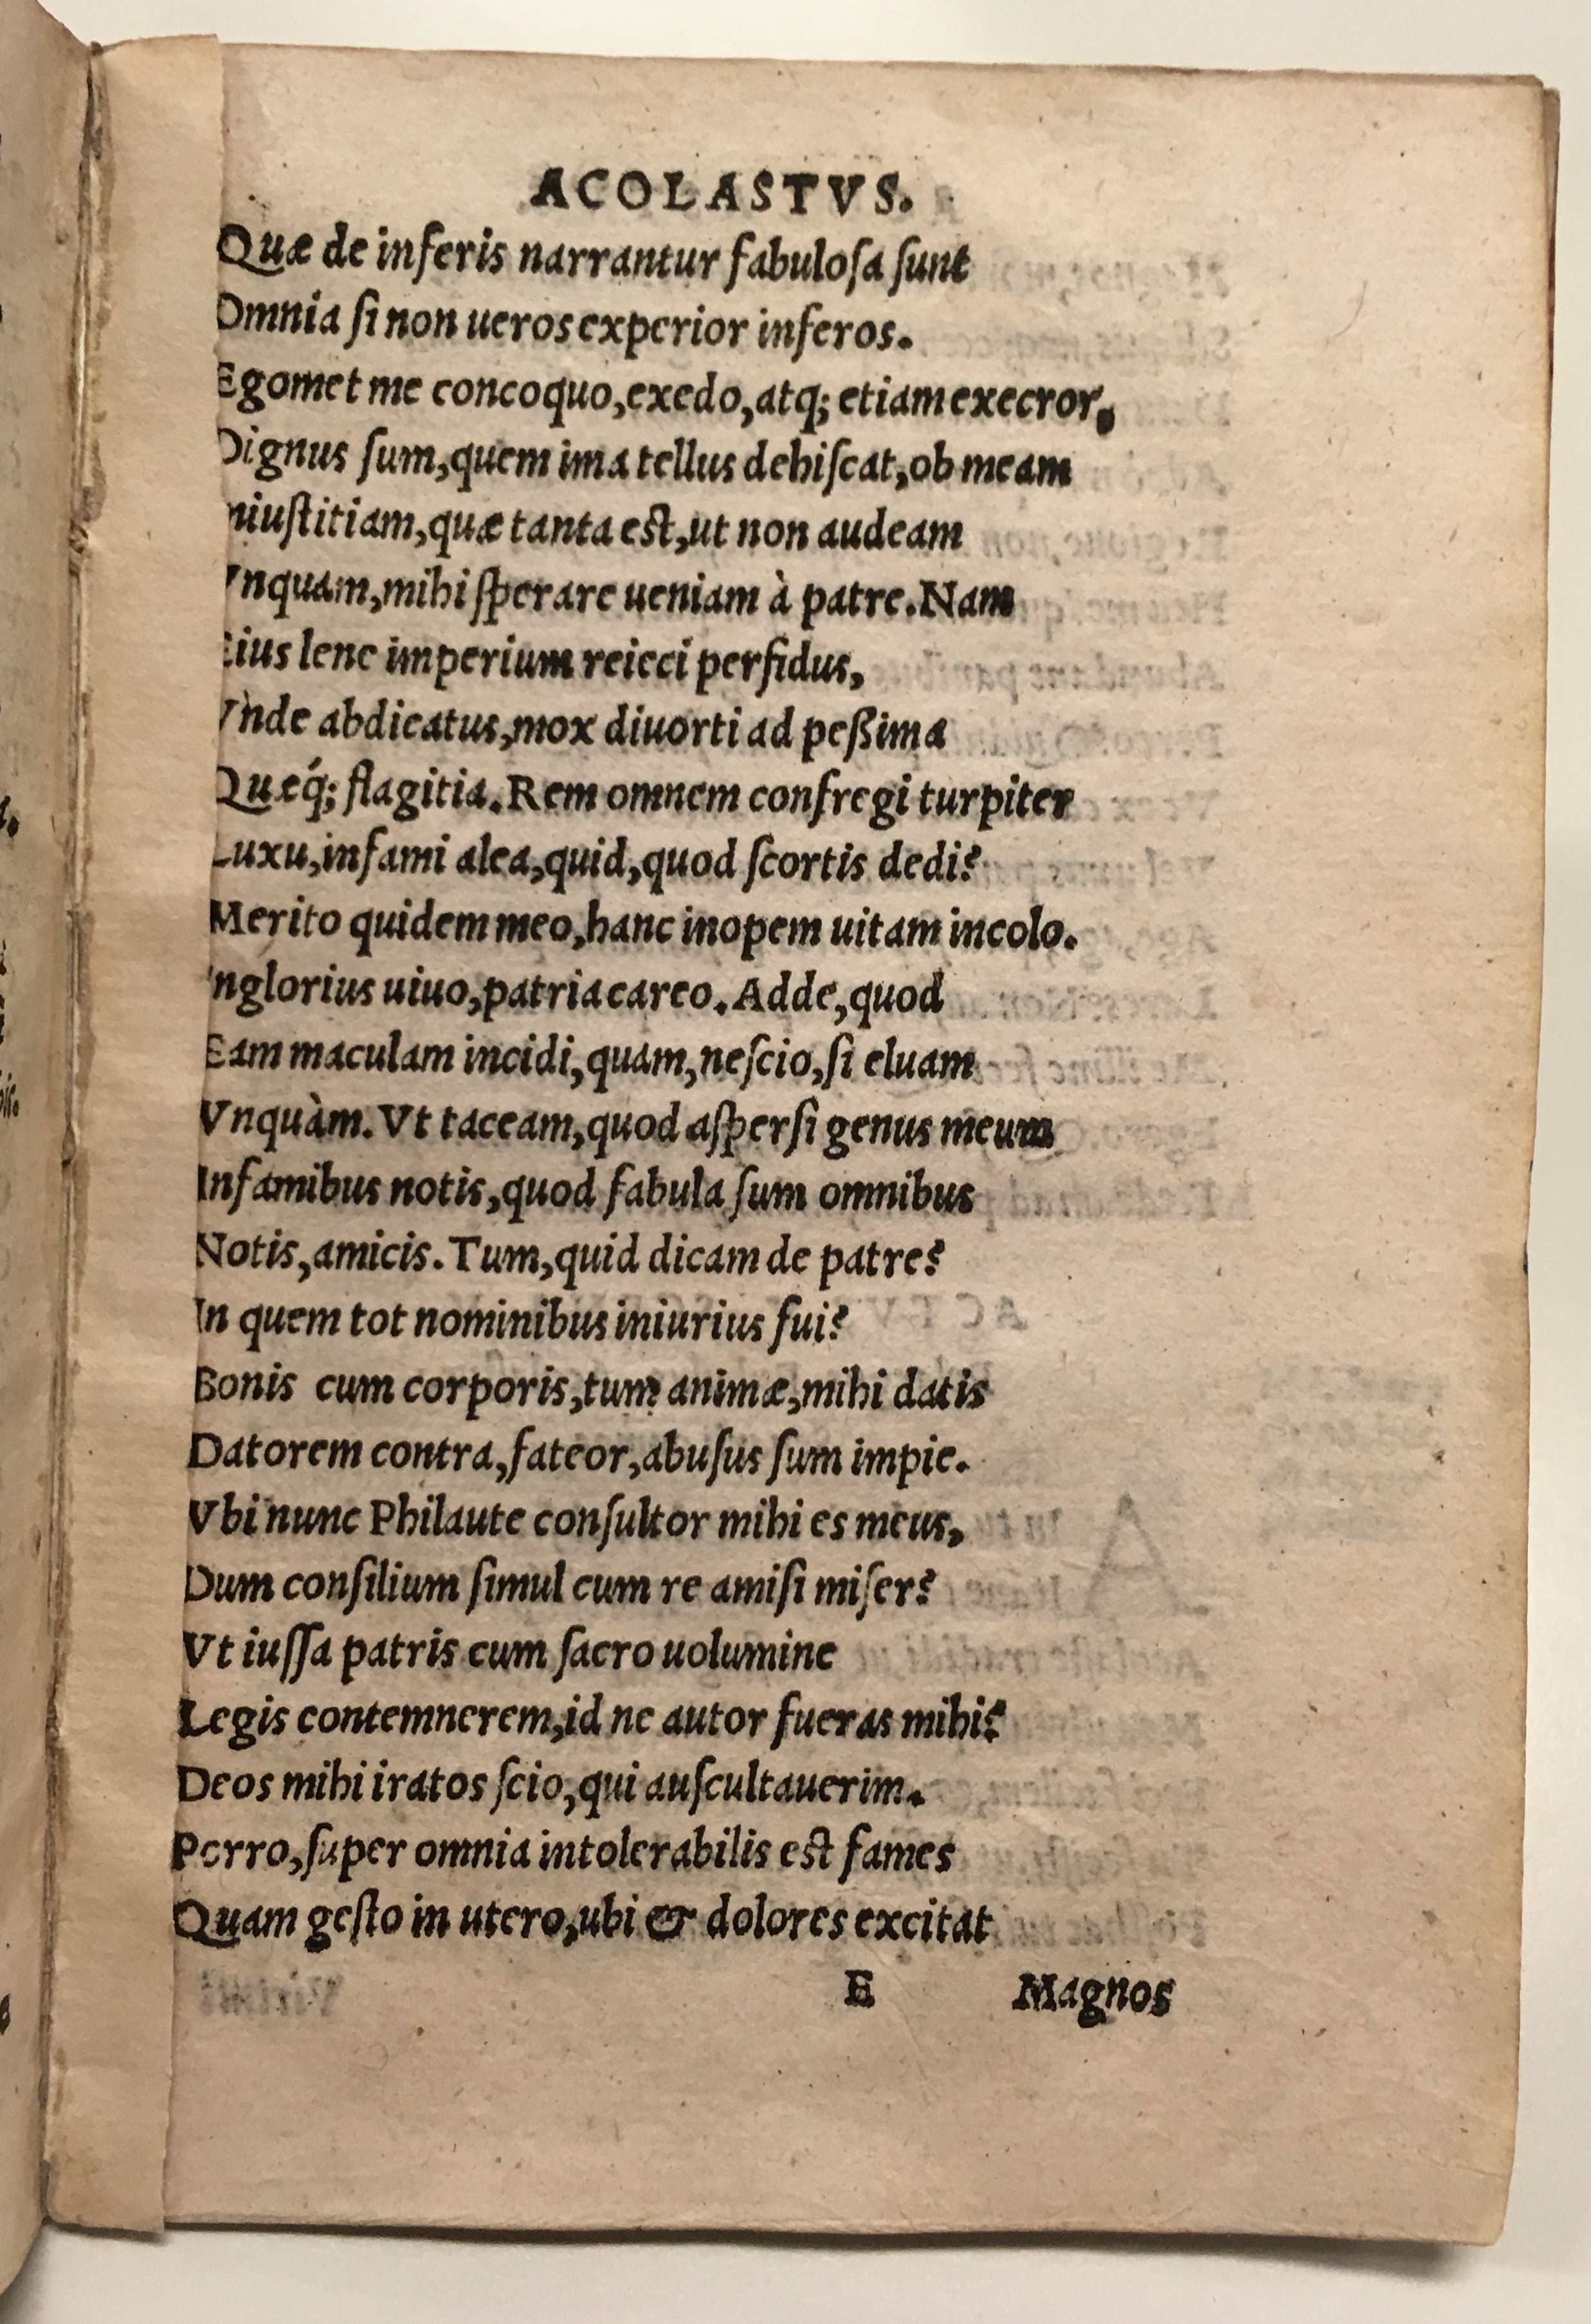 ACOLASTVS.
Quæ de inferis narrantur fabuloſa ſunt
Omnia ſi non ueros experior inferos.
Egomet me concoquo, exedo, atq; etiam execror,
Dignus ſum, quem ima tellus dehiſcat, ob meam
niuſtitiam, quæ tanta est, ut non audeam
Vnquam, mihi ſperare ueniam à patre. Nam
Eius lene imperium reieci perfidus,
Vnde abdicatus, mox diuorti ad peßima
Queq́; flagitia. Rem omnem confregi turpiter
Luxu, infami alea, quid, quod ſcortis dedi?
Merito quidem meo, hanc inopem uitam incolo.
Inglorius uiuo, patria careo. Adde, quod
Eam maculam incidi, quam, neſcio, ſi eluam
Vnquàm. Vt taceam, quod aſperſi genus meum
Infamibus notis, quod fabula ſum omnibus
Notis, amicis. Tum, quid dicam de patre?
In quem tot nominibus iniurius fui?
Bonis cum corporis, tum animæ, mihi datis
Datorem contra, fateor, abuſus ſum impie.
Vbi nunc Philaute conſultor mihi es meus,
Dum conſilium ſimul cum re amiſi miſer?
Vt iuſſa patris cum ſacro uolumine
Legis contemnerem, id ne autor fueras mihi?
Deos mihi iratos ſcio, qui auſcultauerim.
Porro, ſuper omnia intolerabilis est fames
Quam geſto in utero, ubi & dolores excitat
E Magnos